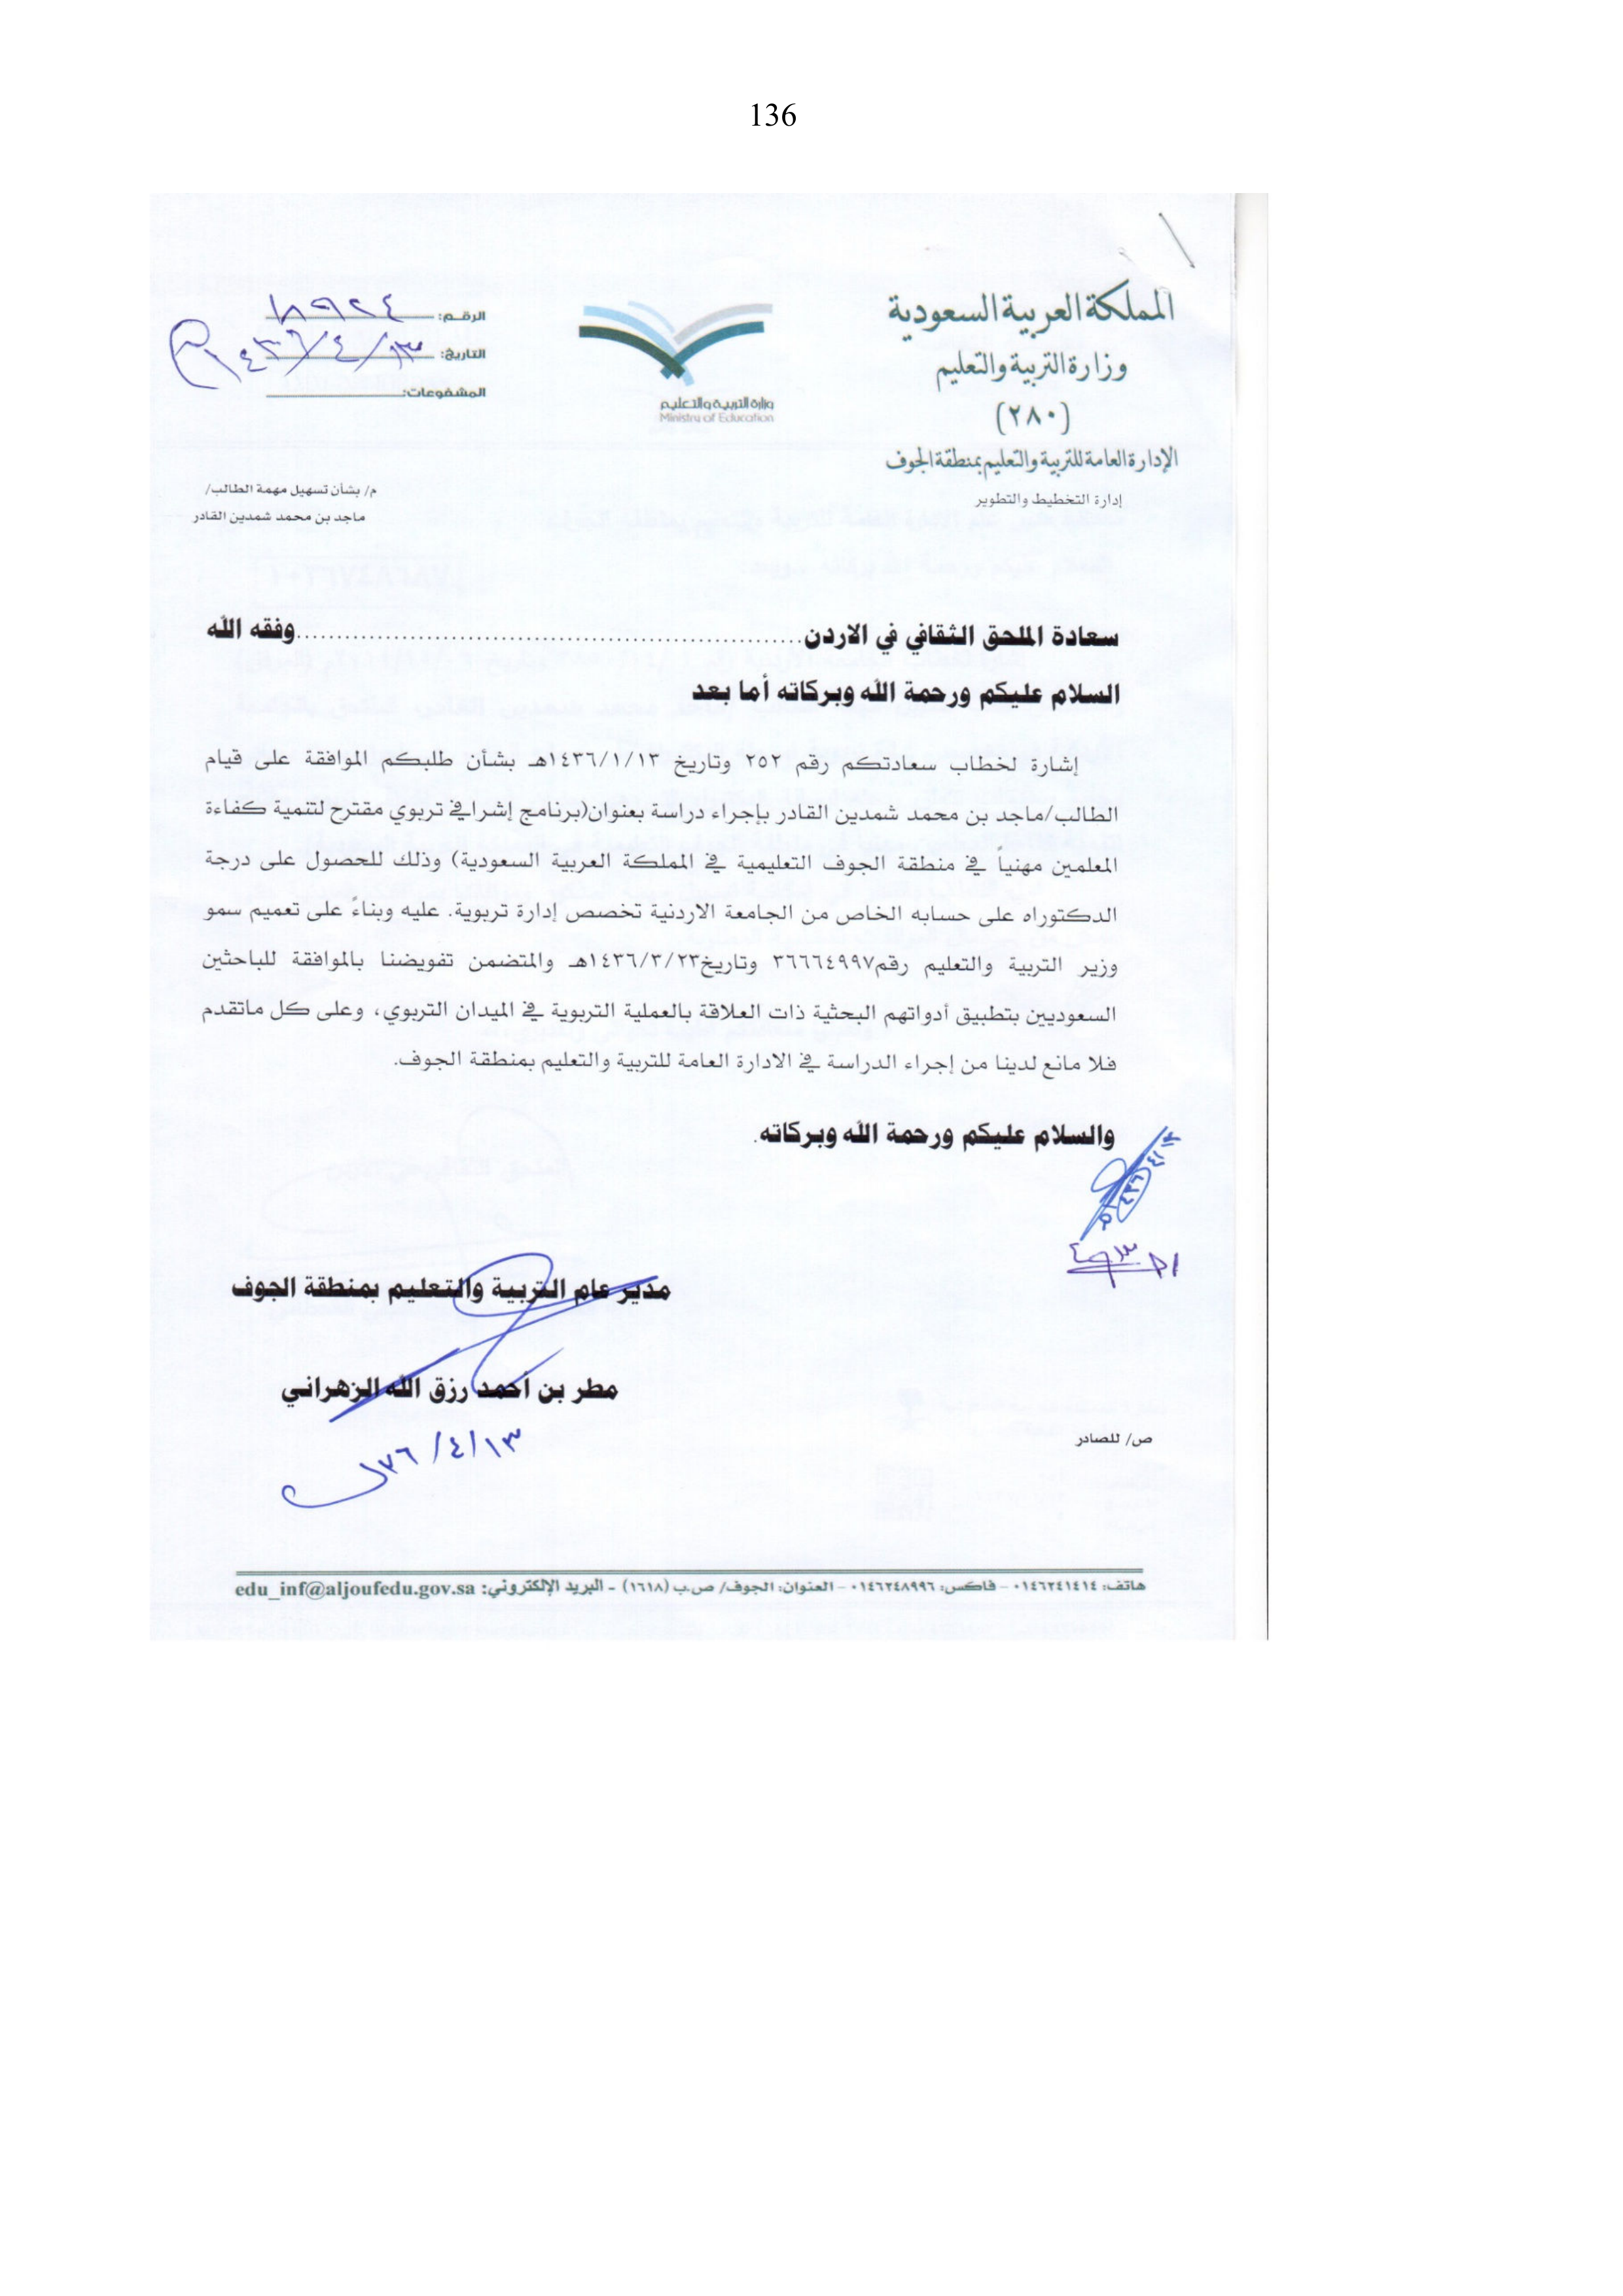 136
المملكة العربية السعودية
وزارة التربية والتعليم
(٢٨٠)
الإدارة العامة للتربية والتعليم بمنطقة الجوف
إدارة التخطيط والتطوير
وزارة التربية والتعليم
Ministry of Education
الرقم:
التاريخ: ١٣/٤/١٤٣٦
المشفوعات:
م/ بشأن تسهيل مهمة الطالب/
ماجد بن محمد شمدين القادر
سعادة الملحق الثقافي في الاردن..............................................................وفقه الله
السلام عليكم ورحمة الله وبركاته أما بعد
إشارة لخطاب سعادتكم رقم ٢٥٢ وتاريخ ١٤٣٦/١/١٣هـ بشأن طلبكم الموافقة على قيام
الطالب/ماجد بن محمد شمدين القادر بإجراء دراسة بعنوان(برنامج إشرافي تربوي مقترح لتنمية كفاءة
المعلمين مهنياً في منطقة الجوف التعليمية في المملكة العربية السعودية) وذلك للحصول على درجة
الدكتوراه على حسابه الخاص من الجامعة الاردنية تخصص إدارة تربوية. عليه وبناءً على تعميم سمو
وزير التربية والتعليم رقم٣٦٦٦٤٩٩٧ وتاريخ١٤٣٦/٣/٢٣هـ والمتضمن تفويضنا بالموافقة للباحثين
السعوديين بتطبيق أدواتهم البحثية ذات العلاقة بالعملية التربوية في الميدان التربوي، وعلى كل ماتقدم
فلا مانع لدينا من إجراء الدراسة في الادارة العامة للتربية والتعليم بمنطقة الجوف.
والسلام عليكم ورحمة الله وبركاته.
مدير عام التربية والتعليم بمنطقة الجوف
مطر بن أحمد رزق الله الزهراني
١٣/٤/٣٦
ص/ للصادر
هاتف: ٠١٤٦٢٤١٤١٤ – فاكس: ٠١٤٦٢٤٨٩٩٦ – العنوان: الجوف/ ص.ب (١٦١٨) - البريد الإلكتروني: edu_inf@aljoufedu.gov.sa